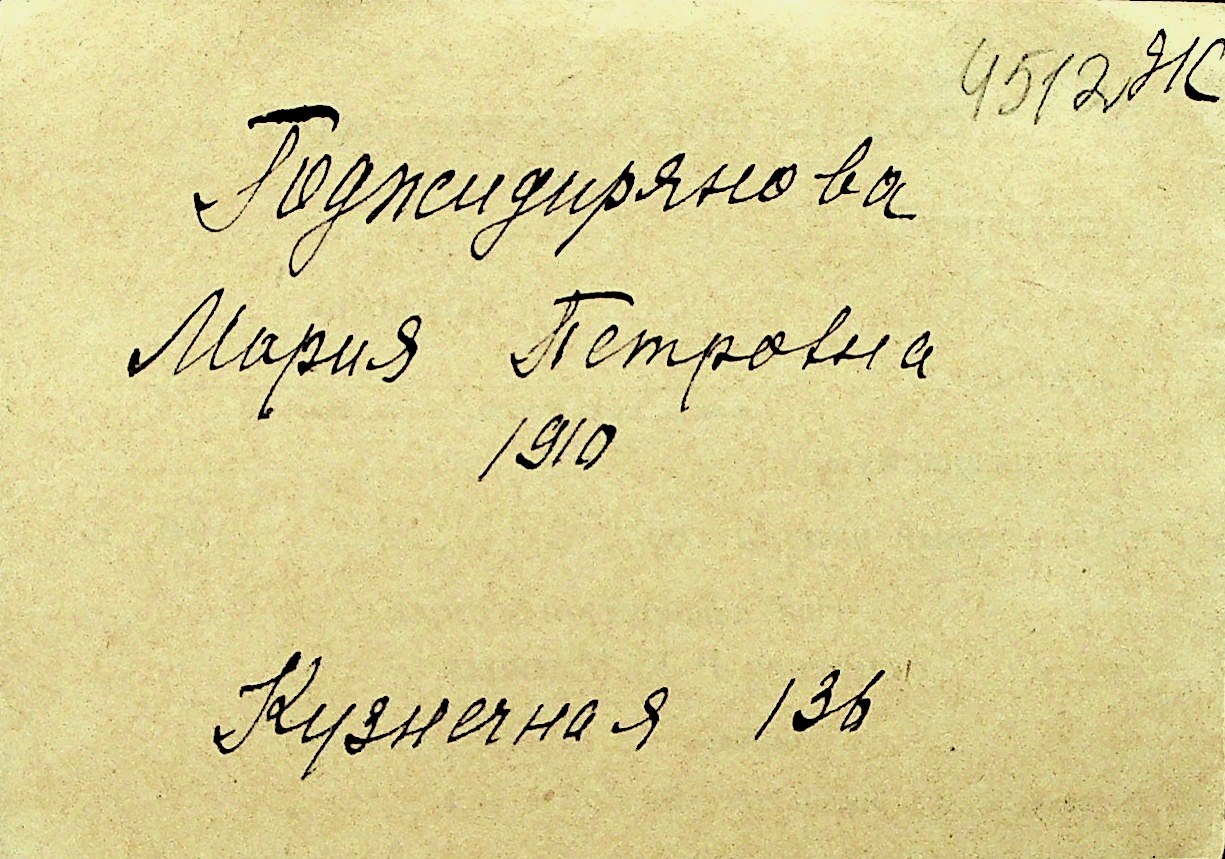 4512 ЯК
Годжидирянова
Мария Петровна
1910
Кузнечная 136